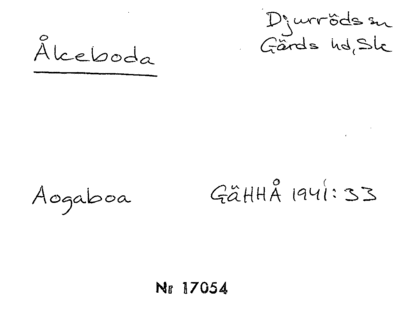 Åkeboda
Djurröds sn
Gärds hd, Sk
Aogaboa
GäHHÅ 1941: 33
Nr 17054